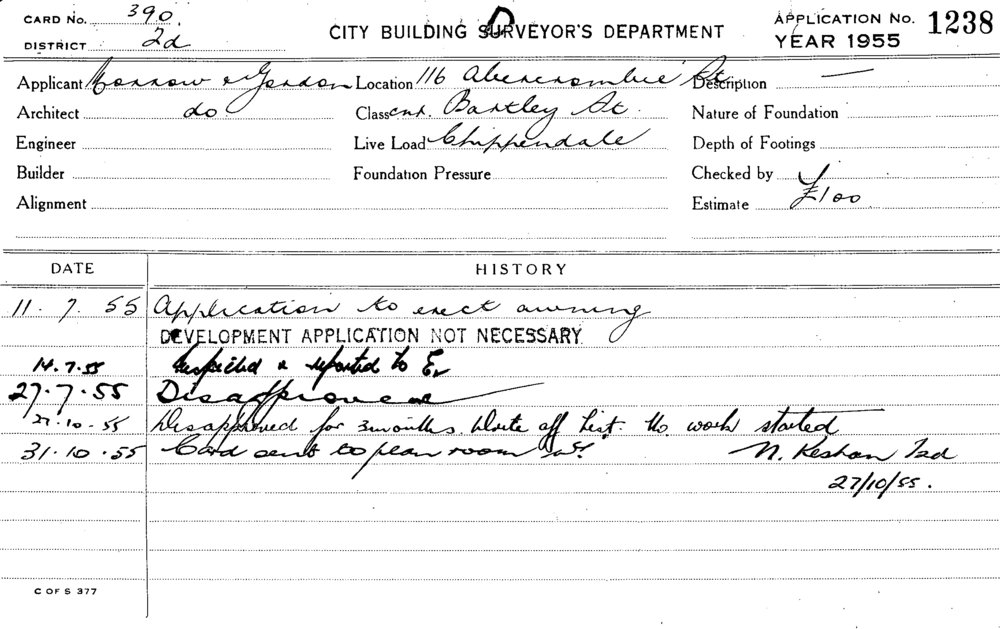 CARD No. 390.
DISTRICT 2d
CITY BUILDING SURVEYOR'S DEPARTMENT
D
APPLICATION No. 1238
YEAR 1955
Applicant Morrow & Gordon Location 116 Abercrombie St Description —
Architect do Class cnr. Bartley St. Nature of Foundation
Engineer Live Load Chippendale Depth of Footings
Builder Foundation Pressure Checked by
Alignment Estimate £100
DATE HISTORY
11. 7. 55 Application to erect awning
DEVELOPMENT APPLICATION NOT NECESSARY
14.7.55 Inspected & reported to
27.7.55 Disapproved
27.10.55 Disapproved for 3 months. Write off list. No work started
31.10.55 Card sent to plan room N. Keshan
27/10/55.
C OF S 377